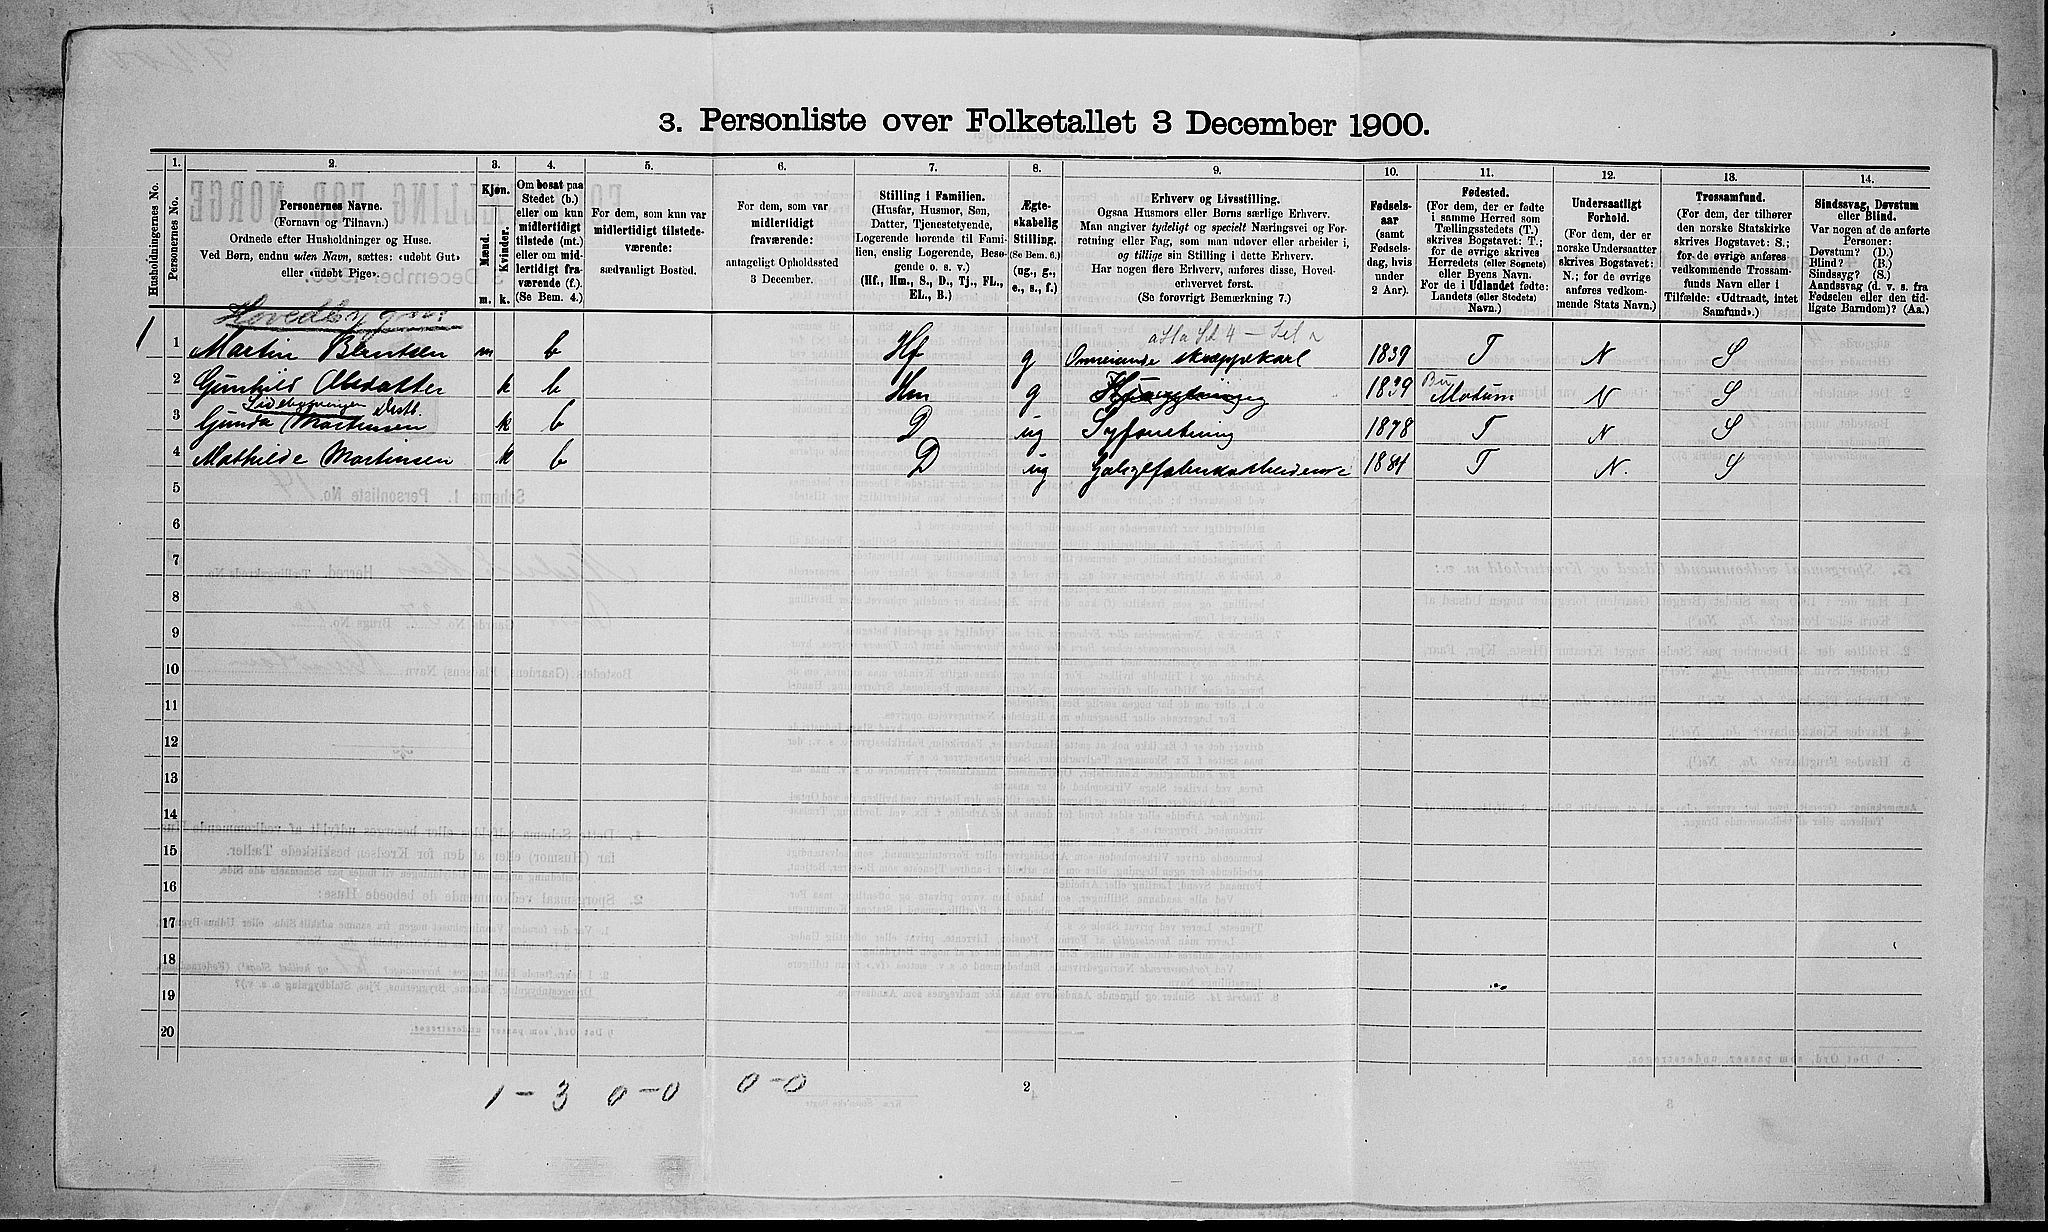 3. Personliste over Folketallet 3 December 1900.
Husholdningernes No.
1. Personernes No.
2. Personernes Navne.
(Fornavn og Tilnavn.)
Ordnede efter Husholdninger og Huse.
Ved Børn, endnu uden Navn, sættes: «udøbt Gut»
eller «udøbt Pige».
3. Kjøn.
Mænd. Kvinder.
m. k.
4. Om bosat paa
Stedet (b.)
eller om kun
midlertidigt
tilstede (mt.)
eller om mid-
lertidigt fra-
værende (f.).
(Se Bem. 4.)
5. For dem, som kun var
midlertidigt tilstede-
værende:
sædvanligt Bosted.
6. For dem, som var
midlertidigt
fraværende:
antageligt Opholdssted
3 December.
7. Stilling i Familien.
(Husfar, Husmor, Søn,
Datter, Tjenestetyende,
Logerende hørende til Fami-
lien, enslig Logerende, Besø-
gende o. s. v.)
(Hf., Hm., S., D., Tj., FL.,
EL., B.)
8. Ægte-
skabelig
Stilling.
(Se Bem. 6.)
(ug., g.,
e., s., f.)
9. Erhverv og Livsstilling.
Ogsaa Husmors eller Børns særlige Erhverv.
Man angiver tydeligt og specielt Næringsvei og For-
retning eller Fag, som man udøver eller arbeider i,
og tillige sin Stilling i dette Erhverv.
Har nogen flere Erhverv, anføres disse, Hoved-
erhvervet først.
(Se forøvrigt Bemærkning 7.)
10. Fødsels-
aar
(samt
Fødsels-
dag, hvis
under
2 Aar).
11. Fødested.
(For dem, der er fødte
i samme Herred som
Tællingsstedets (T.)
skrives Bogstavet: T.;
for de øvrige skrives
Herredets (eller Sognets)
eller Byens Navn.
For de i Udlandet fødte:
Landets (eller Stedets)
Navn.)
12. Undersaatligt
Forhold.
(For dem, der er
norske Undersaatter
skrives Bogstavet:
N.; for de øvrige
anføres vedkom-
mende Stats Navn.)
13. Trossamfund.
(For dem, der tilhører
den norske Statskirke
skrives Bogstavet: S.;
for de øvrige anføres
vedkommende Trossam-
funds Navn eller i
Tilfælde: «Udtraadt, intet
Samfund».)
14. Sindssvag, Døvstum
eller Blind.
Var nogen af de anførte
Personer:
Døvstum? (D.)
Blind? (B.)
Sindssyg? (S.)
Aandssvag (d. v. s. fra
Fødselen eller den tid-
ligste Barndom)? (Aa.)
1 Hovedbygn.
1 Martin Berntsen m b Hf g 1839 T N S
2 Gunhild Olsdatter k b Hm g 1839 Bu Modum N S
Sidebygningen
3 Gunda Martinsen k b D ug Syforretning 1878 T N S
4 Mathilde Martinsen k b D ug 1884 T N. S
5
6
7
8
9
10
11
12
13
14
15
16
17
18
19
20
1 - 3 0 - 0 0 - 0
2